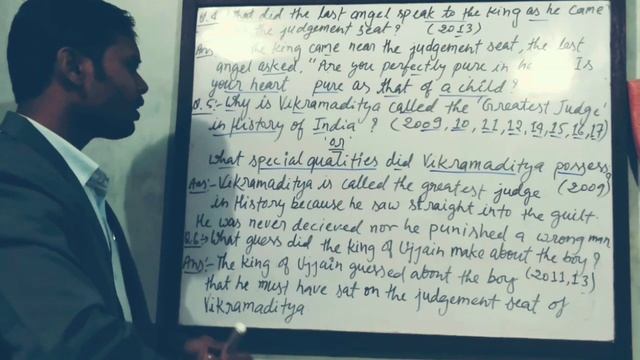 Q.4 What did the last angel speak to the king as he came
the judgement seat? (2013)
Ans the king came near the judgement seat, the last
angel asked. "Are you perfectly pure in Is
your heart pure as that of a child?
Q.5:- Why is Vikramaditya called the 'Greatest Judge'
in History of India'? (2009, 10, 11, 12, 14, 15, 16, 17)
'or'
What special qualities did Vikramaditya possess?
Ans:- Vikramaditya is called the greatest judge (2009)
in History because he saw straight into the guilt.
He was never decieved nor he punished a wrong man
Q.6:- What guess did the king of Ujjain make about the boy?
Ans:- The king of Ujjain guessed about the boy (2011, 13)
that he must have sat on the judgement seat of
Vikramaditya